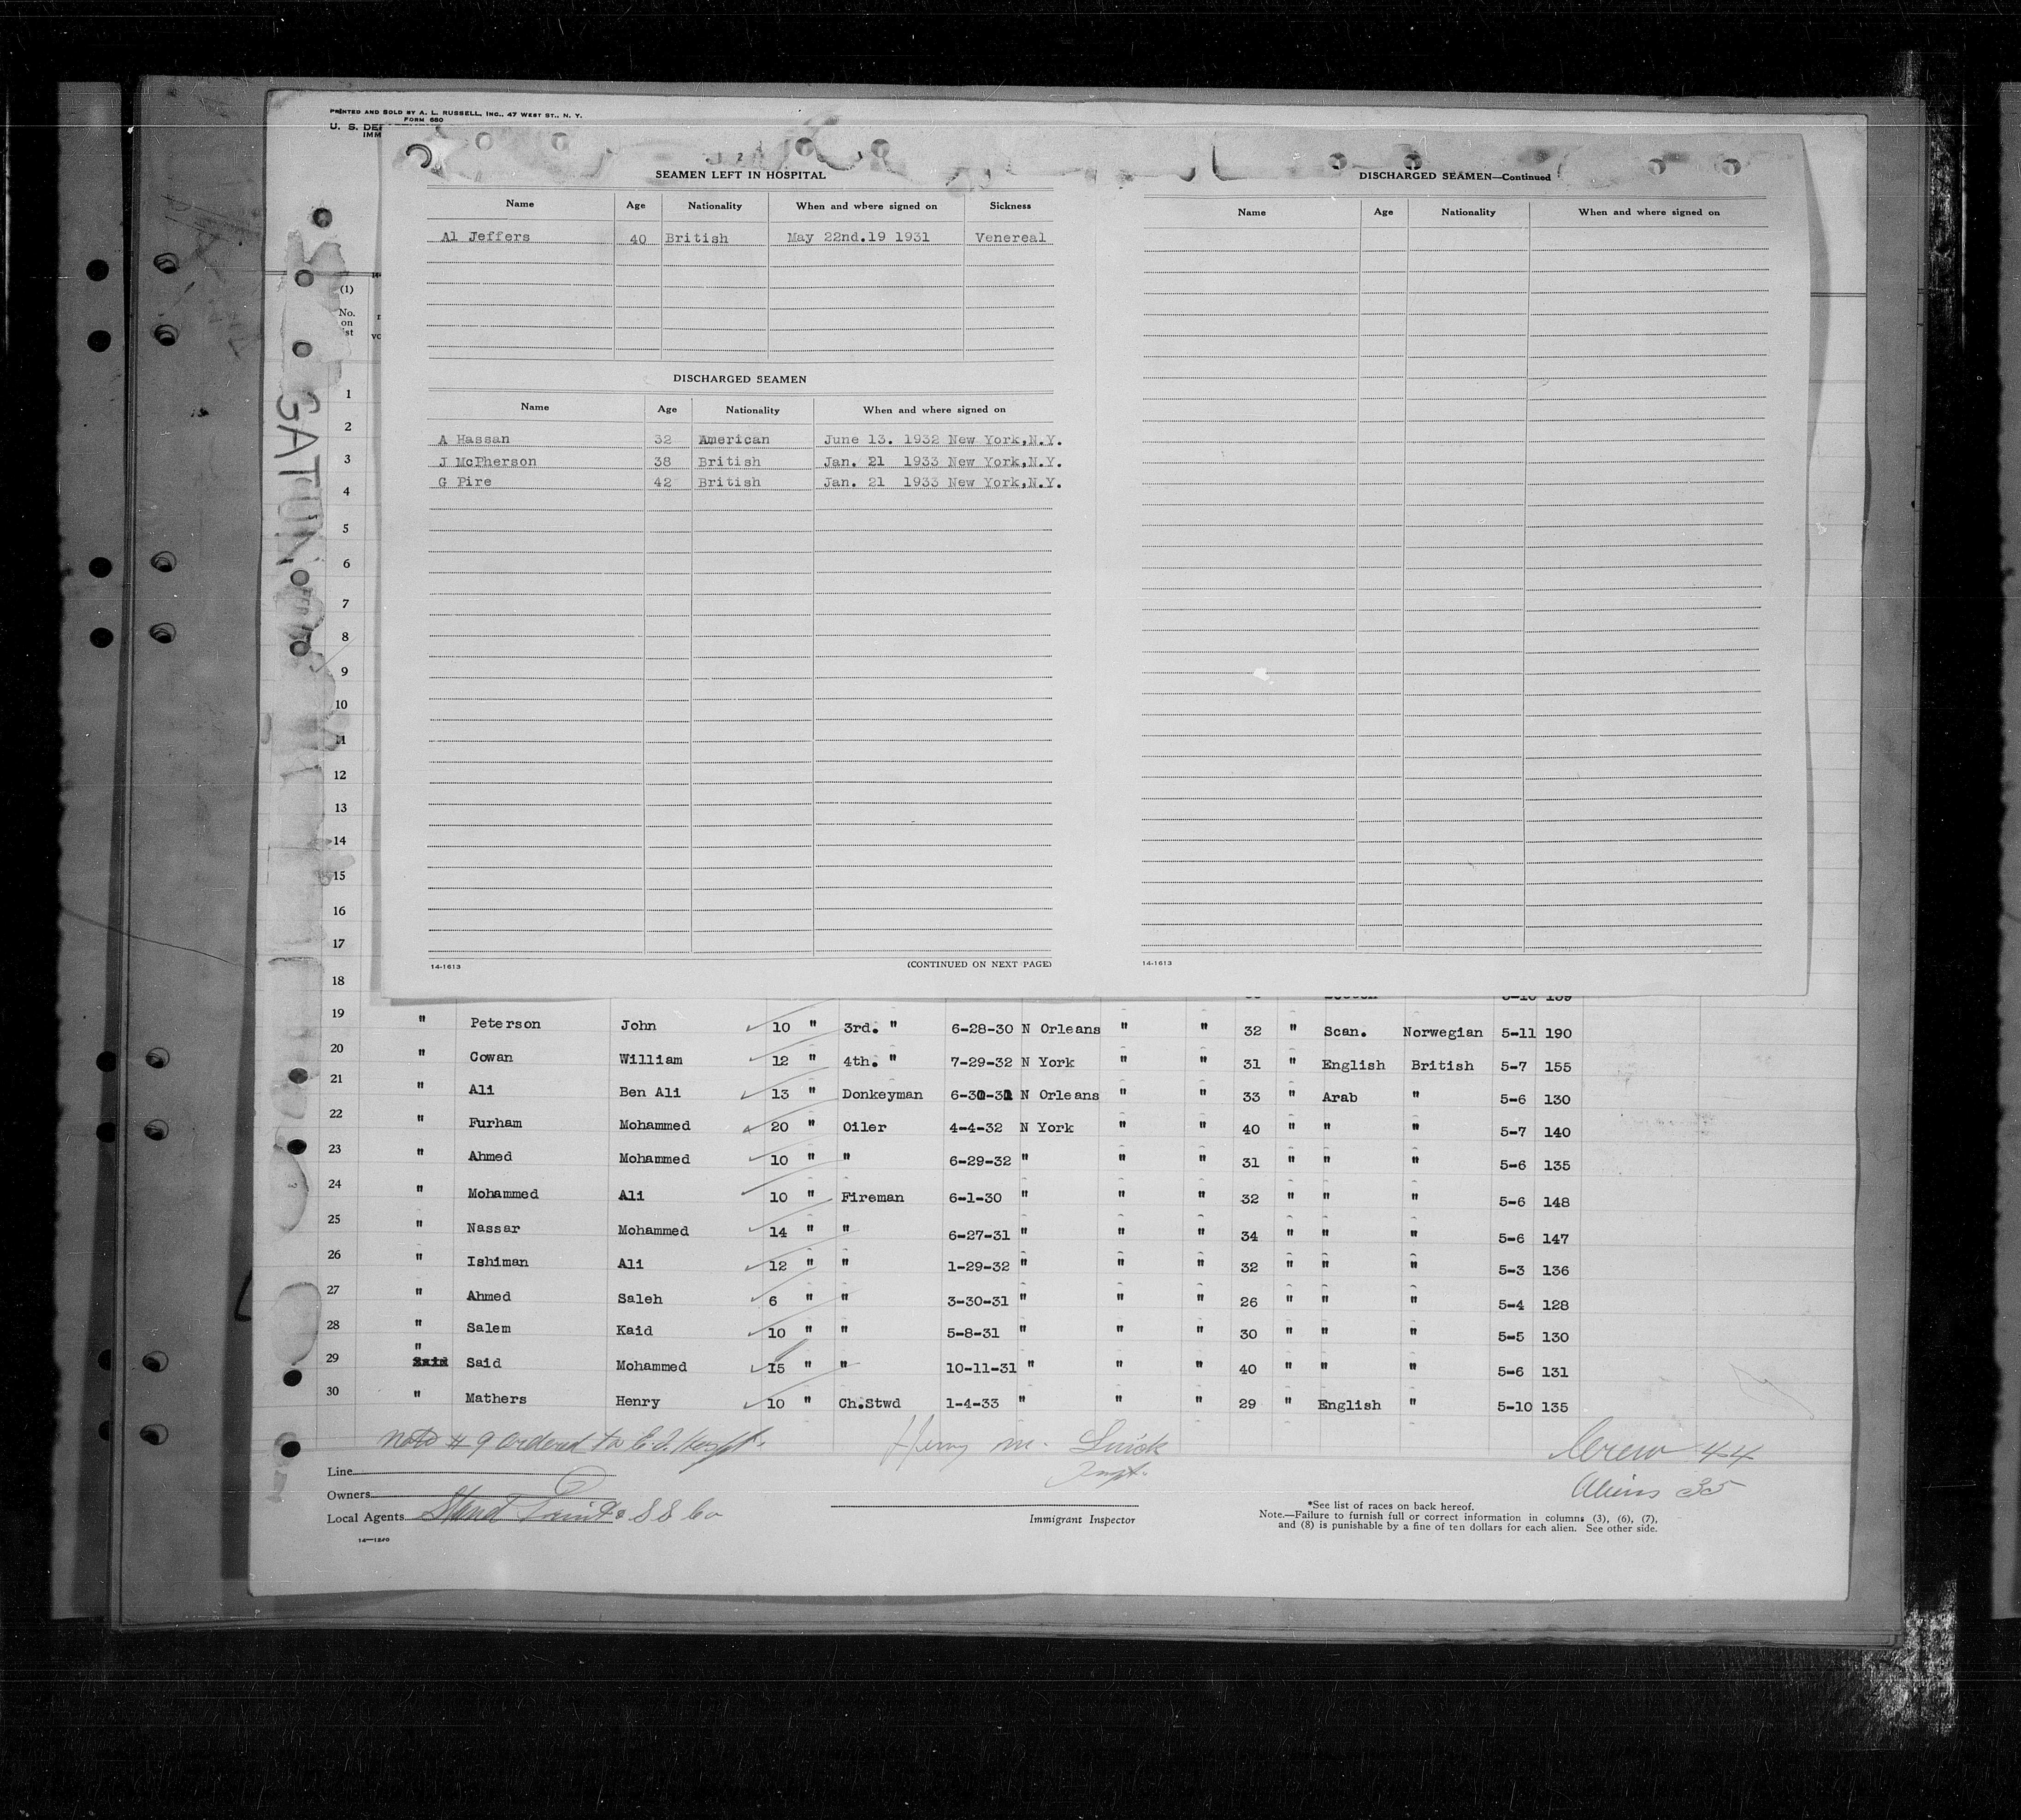 PRINTED AND SOLD BY A. L. RUSSELL, INC., 47 WEST ST., N. Y.
FORM 680
U. S. DE
IMM
SEAMEN LEFT IN HOSPITAL
Name Age Nationality When and where signed on Sickness
Al Jeffers 40 British May 22nd.19 1931 Venereal
DISCHARGED SEAMEN
Name Age Nationality When and where signed on
A Hassan 32 American June 13. 1932 New York,N.Y.
J McPherson 38 British Jan. 21 1933 New York,N.Y.
G Pire 42 British Jan. 21 1933 New York,N.Y.
14-1613 (CONTINUED ON NEXT PAGE)
DISCHARGED SEAMEN—Continued
Name Age Nationality When and where signed on
14-1613
(1)
No.
on
ist
1
2
3
4
5
6
7
8
9
10
11
12
13
14
15
16
17
18 5-10 159
19 " Peterson John 10 " 3rd. " 6-28-30 N Orleans " " 32 " Scan. Norwegian 5-11 190
20 " Cowan William 12 " 4th. " 7-29-32 N York " " 31 " English British 5-7 155
21 " Ali Ben Ali 13 " Donkeyman N Orleans " " 33 " Arab " 5-6 130
22 " Furham Mohammed 20 " Oiler 4-4-32 N York " " 40 " " " 5-7 140
23 " Ahmed Mohammed 10 " " 6-29-32 " " " 31 " " " 5-6 135
24 " Mohammed Ali 10 " Fireman 6-1-30 " " " 32 " " " 5-6 148
25 " Nassar Mohammed 14 " " 6-27-31 " " " 34 " " " 5-6 147
26 " Ishiman Ali 12 " " 1-29-32 " " " 32 " " " 5-3 136
27 " Ahmed Saleh 6 " " 3-30-31 " " " 26 " " " 5-4 128
28 " Salem Kaid 10 " " 5-8-31 " " " 30 " " " 5-5 130
29 " Said Mohammed 15 " " 10-11-31 " " " 40 " " " 5-6 131
30 " Mathers Henry 10 " Ch.Stwd 1-4-33 " " " 29 " English " 5-10 135
note # 9 ordered to E.I. Hospt.
Henry M.
Inspt.
Crew 44
Aliens 35
Line
Owners
Local Agents Stand Fruit & S S Co
14—1240
Immigrant Inspector
*See list of races on back hereof.
Note.—Failure to furnish full or correct information in columns (3), (6), (7),
and (8) is punishable by a fine of ten dollars for each alien. See other side.